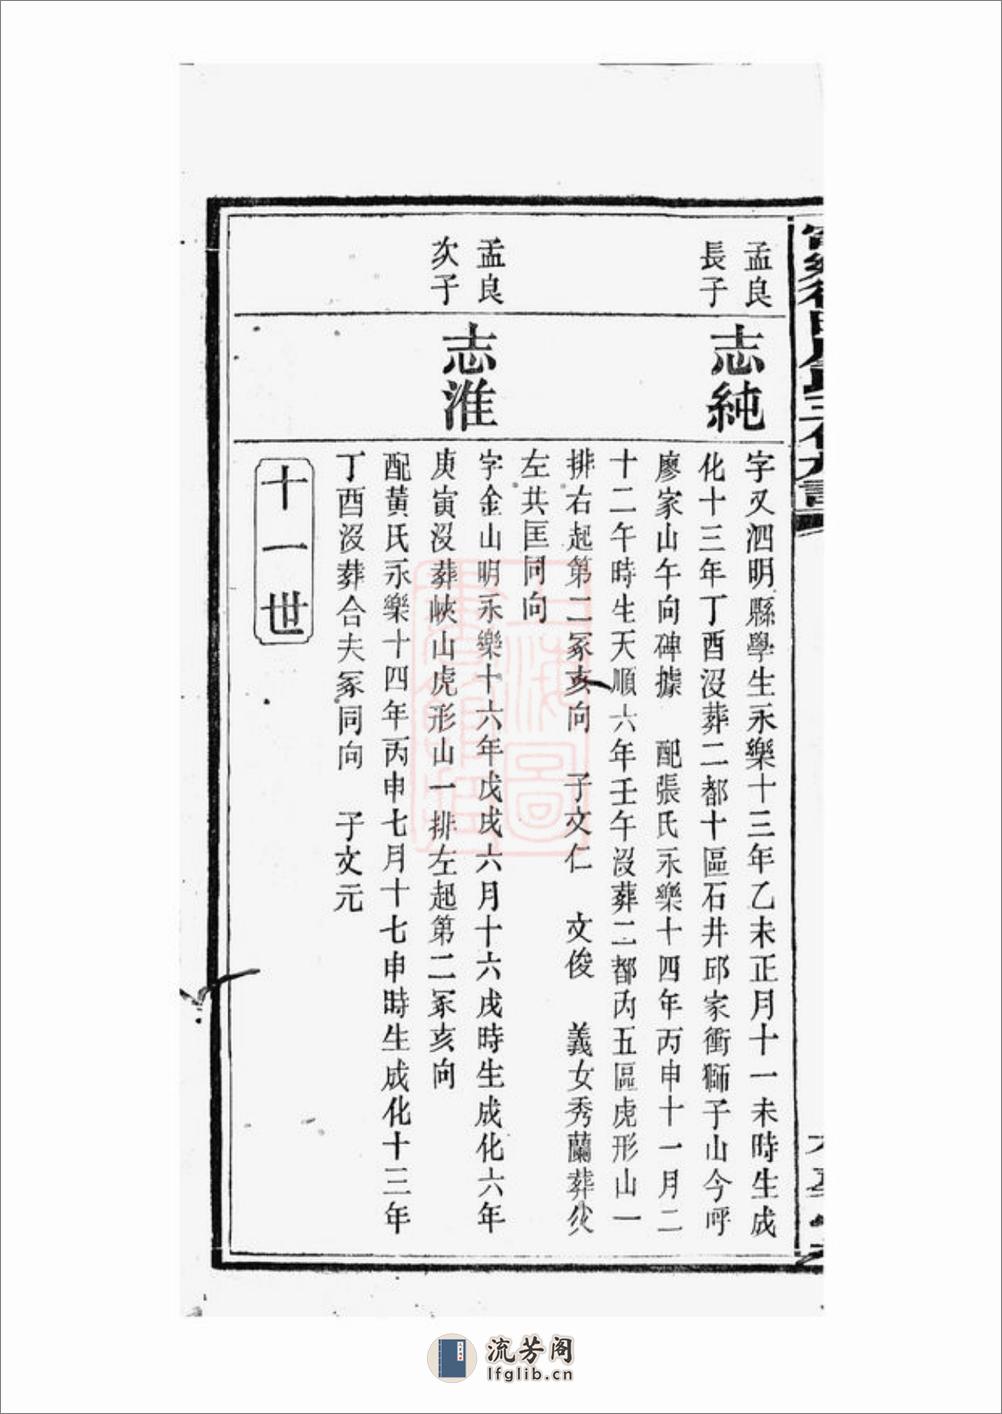 孟良
長子
志純
字又泗明縣學生永樂十三年乙未正月十一未時生成
化十三年丁酉沒葬二都十區石井邱家衝獅子山今呼
廖家山午向碑據 配張氏永樂十四年丙申十一月二
十二午時生天順六年壬午沒葬二都丙五區虎形山一
排右起第二冢亥向 子文仁 文俊 義女秀蘭葬父
左共匡同向
孟良
次子
志淮
字金山明永樂十六年戊戌六月十六戌時生成化六年
庚寅沒葬峽山虎形山一排左起第二冢亥向
配黃氏永樂十四年丙申七月十七申時生成化十三年
丁酉沒葬合夫冢同向 子文元
十一世
上海圖
書館藏
流芳阁
lfglib.cn